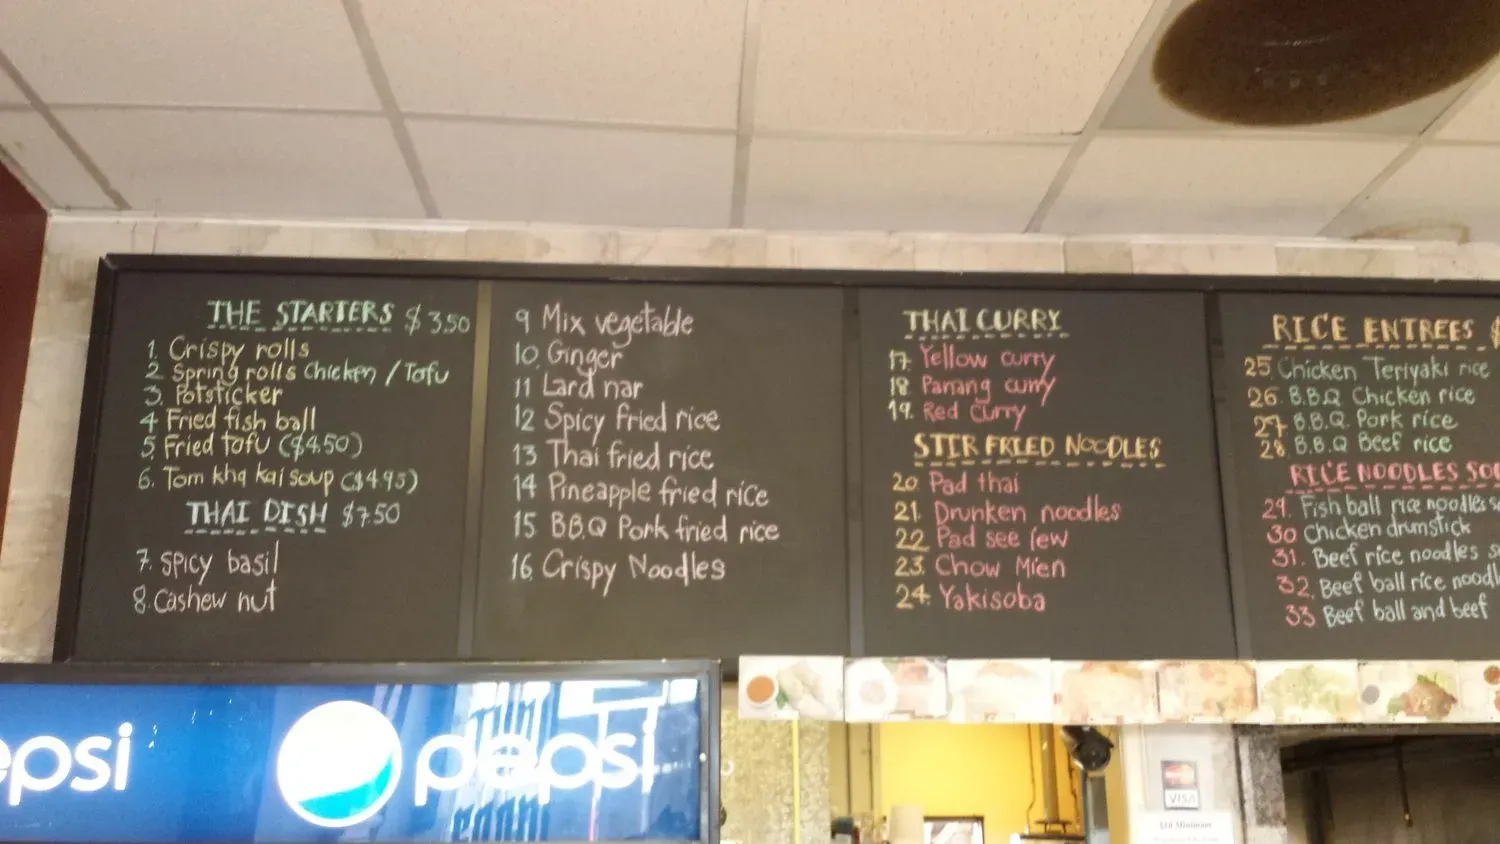 THE STARTERS $3.50
1. Crispy rolls
2 Spring rolls Chicken / Tofu
3. Potsticker
4 Fried fish ball
5 Fried tofu ($4.50)
6. Tom kha kai soup ($4.95)
THAI DISH $7.50
7. Spicy basil
8. Cashew nut
9 Mix vegetable
10. Ginger
11 Lard nar
12 Spicy fried rice
13 Thai fried rice
14 Pineapple fried rice
15. B.B.Q Pork fried rice
16. Crispy Noodles
THAI CURRY
17. Yellow curry
18 Panang curry
19. Red Curry
STIR FRIED NOODLES
20 Pad thai
21. Drunken noodles
22 Pad see iew
23. Chow Mien
24. Yakisoba
RICE ENTREES $
25 Chicken Teriyaki rice
26. B.B.Q Chicken rice
27 B.B.Q. Pork rice
28 B.B.Q Beef rice
RICE NOODLES SOU
29. Fish ball rice noodles s
30 Chicken drumstick
31. Beef rice noodles s
32. Beef ball rice noodl
33 Beef ball and beef
epsi
pepsi
MasterCard
VISA
$10 Minimum